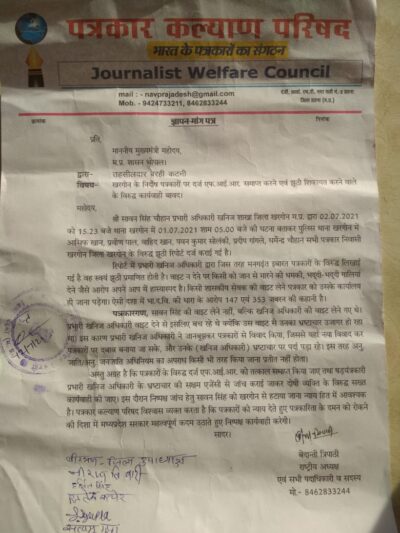 पत्रकार कल्याण परिषद
भारत के पत्रकारों का संगठन
Journalist Welfare Council
mail : - navprajadesh@gmail.com
Mob. - 9424733211, 8462833244
क्रमांक
दिनांक
ज्ञापन-मांग पत्र
प्रति,
माननीय मुख्यमंत्री महोदय,
म.प्र. शासन भोपाल।
द्वारा- तहसीलदार बरही कटनी
विषय- खरगोन के निर्दोष पत्रकारों पर दर्ज एफ.आई.आर. समाप्त करने एवं झूठी शिकायत करने वाले
के विरुद्ध कार्यवाही बावद।
महोदय,
श्री सावन सिंह चौहान प्रभारी अधिकारी खनिज शाखा जिला खरगोन म.प्र. द्वारा 02.07.2021
को 15.23 बजे थाना खरगोन में 01.07.2021 शाम 05.00 बजे की घटना बताकर पुलिस थाना खरगोन में
आसिफ खान, प्रवीण पाल, वाहिद खान, पवन कुमार सोलंकी, प्रदीप गांगले, धर्मेन्द्र चौहान सभी पत्रकार निवासी
खरगोन जिला खरगोन के विरुद्ध झूठी रिपोर्ट दर्ज कराई गई है।
रिपोर्ट में प्रभारी खनिज अधिकारी द्वारा जिस तरह मनगढ़ंत इबारत पत्रकारों के विरुद्ध लिखाई
गई है वह स्वयं झूठी प्रमाणित होती है। बाइट न देने पर किसी को जान से मारने की धमकी, भद्दी-भद्दी गालियां
देने जैसे आरोप अपने आप में हास्यास्पद है। किसी शासकीय सेवक की बाइट लेने पत्रकार को उसके कार्यालय
ही जाना पड़ेगा। ऐसी दशा में भा.द.वि. की धारा के आरोप 147 एवं 353 जबरन की कहानी है।
पत्रकारगण, सावन सिंह की बाइट लेने नहीं, बल्कि खनिज अधिकारी की बाइट लेने गए थे।
प्रभारी खनिज अधिकारी बाइट देने से इसलिए बच रहे थे क्योंकि उस बाइट से उनका भ्रष्टाचार उजागर हो रहा
था। इस कारण प्रभारी खनिज अधिकारी ने जानबूझकर पत्रकारों से विवाद किया, जिससे यहां नया विवाद कर
पत्रकारों पर दबाव बनाया जा सके, और उनके (खनिज अधिकारी) भ्रष्टाचार पर पर्दा पड़ा रहे। इस तरह अनु.
जाति/अनु. जनजाति अधिनियम का अपराध किसी भी तरह किया जाना प्रतीत नहीं होता।
अस्तु आग्रह है कि पत्रकारों के विरुद्ध दर्ज एफ.आई.आर. को तत्काल समाप्त किया जाए तथा षड़यंत्रकारी
प्रभारी खनिज अधिकारी के भ्रष्टाचार की सक्षम एजेंसी से जांच कराई जाकर दोषी व्यक्ति के विरुद्ध सख्त
कार्यवाही की जाए। इस दौरान निष्पक्ष जांच हेतु सावन सिंह को खरगोन से हटाया जाना न्याय हित में आवश्यक
है। पत्रकार कल्याण परिषद विश्वास व्यक्त करता है कि पत्रकारों को न्याय देते हुए पत्रकारिता के दमन को रोकने
की दिशा में मध्यप्रदेश सरकार महत्वपूर्ण कदम उठाते हुए निष्पक्ष कार्यवाही करेगी।
सादर।
बेदान्ती त्रिपाठी
राष्ट्रीय अध्यक्ष
एवं सभी पदाधिकारी व सदस्य
मो.- 8462833244